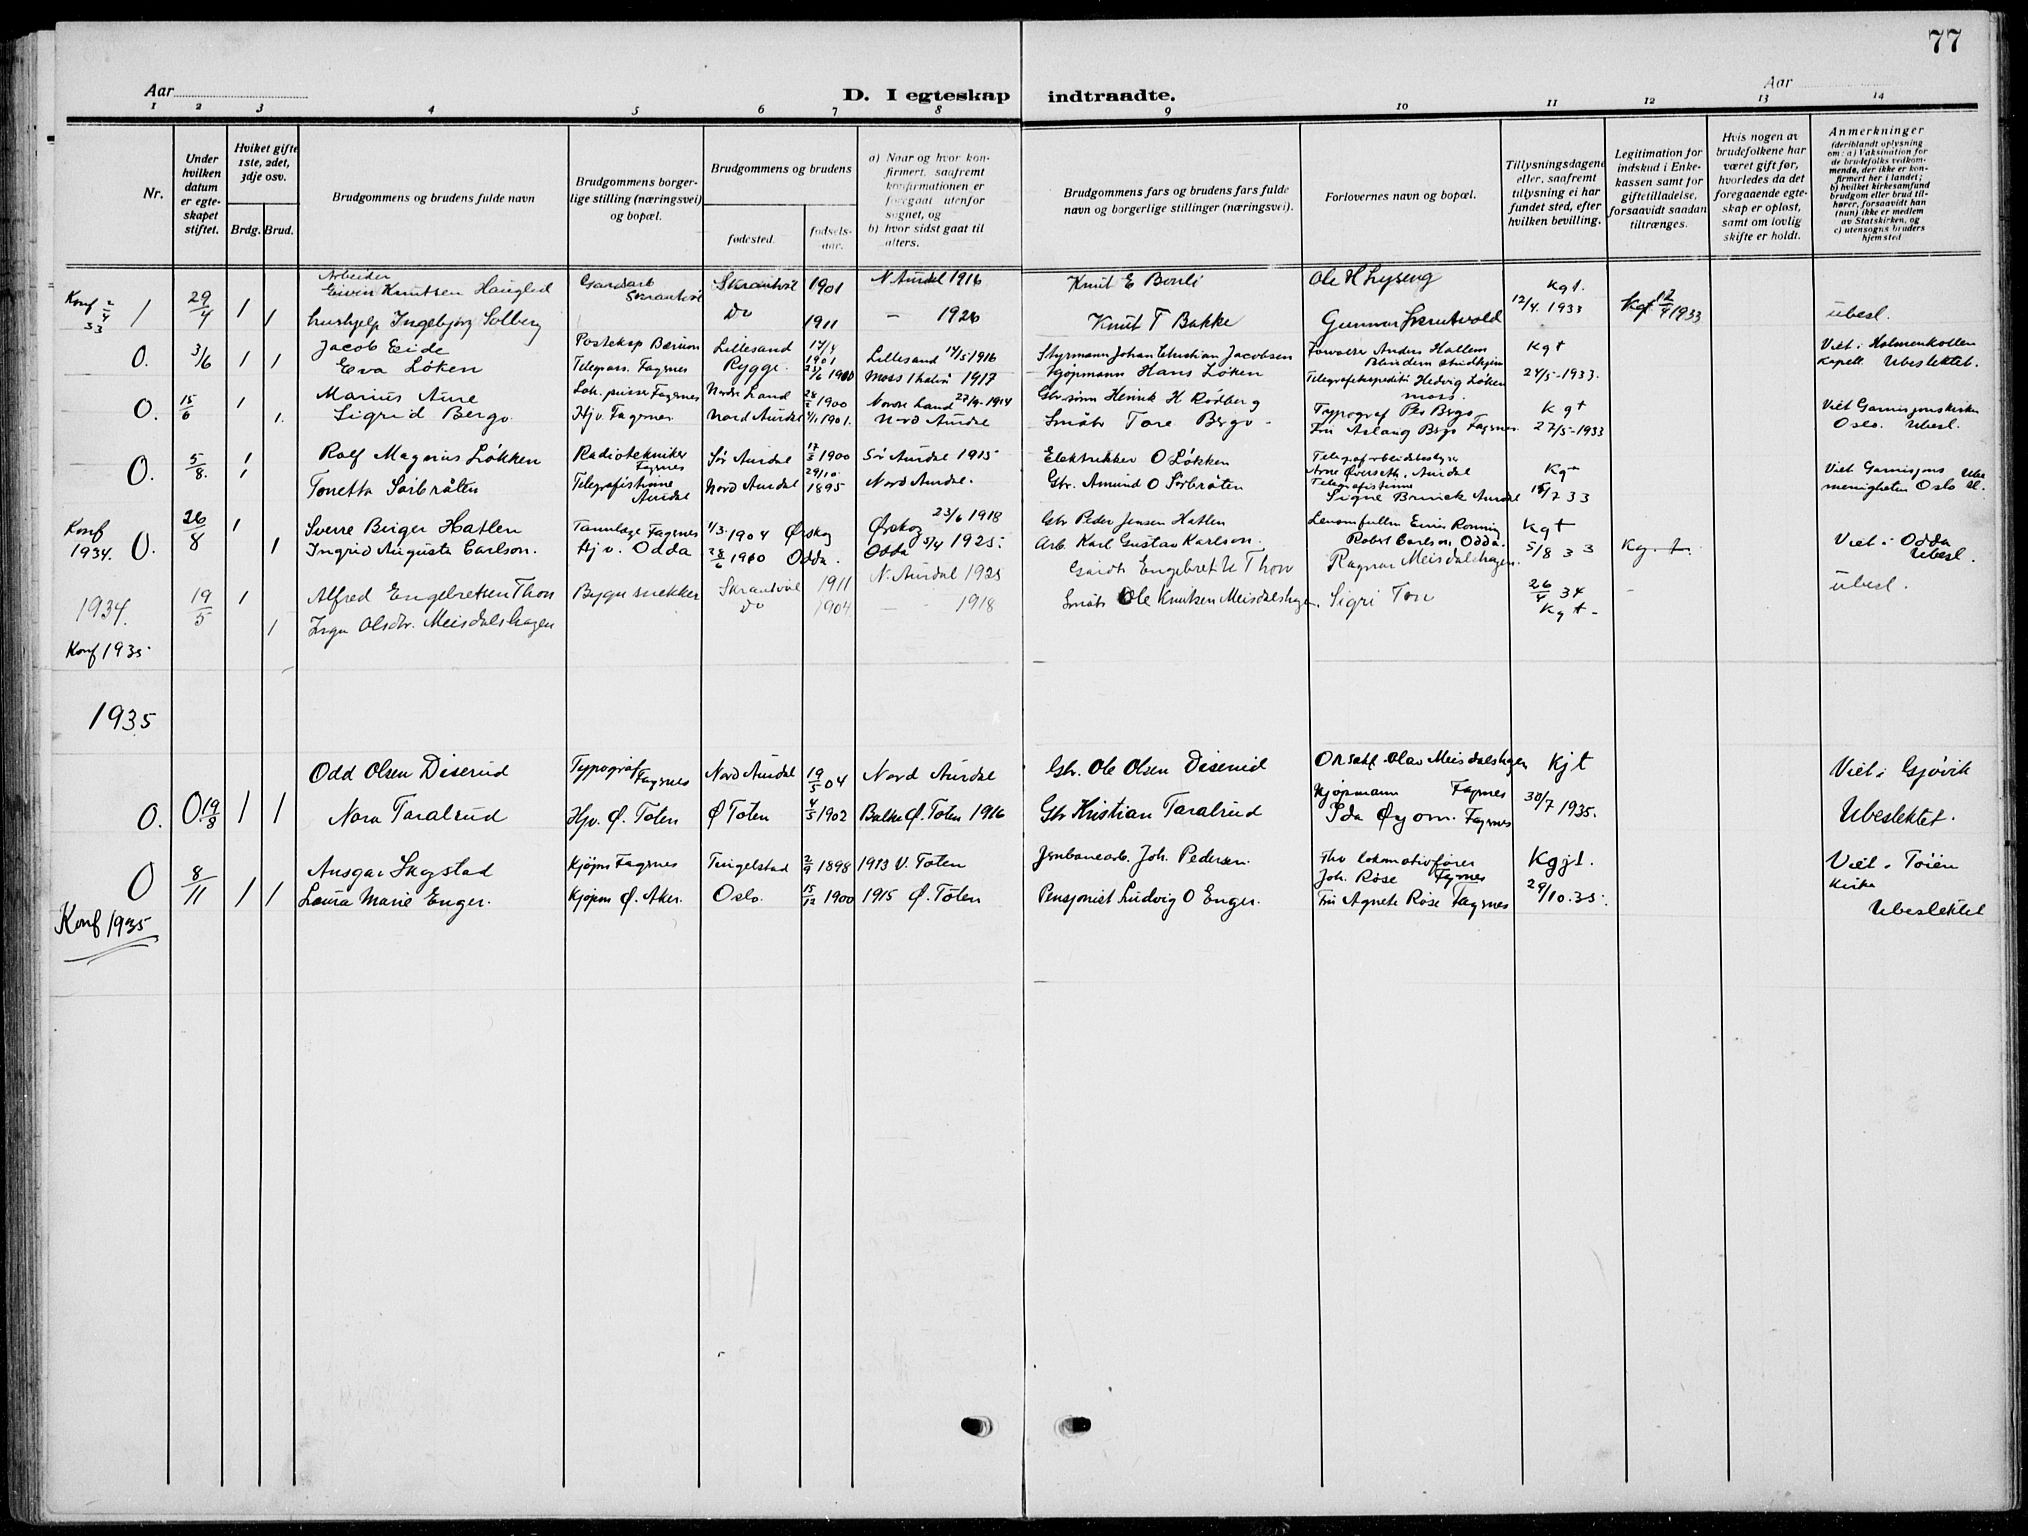 77
Aar
D. I egteskap indtraadte.
Aar
1 2 3 4 5 6 7 8 9 10 11 12 13 14
Nr.
Under hvilken datum er egteskapet stiftet.
Hviket gifte 1ste, 2det, 3dje osv.
Brdg. Brud.
Brudgommens og brudens fulde navn
Brudgommens borgerlige stilling (næringsvei) og bopæl.
Brudgommens og brudens
fødested.
fødselsaar.
a) Naar og hvor konfirmert, saafremt konfirmationen er foregaat utenfor sognet, og
b) hvor sidst gaat til alters.
Brudgommens fars og brudens fars fulde navn og borgerlige stillinger (næringsvei).
Forlovernes navn og bopæl.
Tillysningsdagene eller, saafremt tillysning ei har fundet sted, efter hvilken bevilling.
Legitimation for indskud i Enkekassen samt for giftetilladelse, forsaavidt saadan tiltrænges.
Hvis nogen av brudefolkene har været gift før, hvorledes da det foregaaende egteskap er opløst, samt om lovlig skifte er holdt.
Anmerkninger (deriblandt oplysning om: a) Vaksination for de brudefolks vedkommende, der ikke er konfirmert her i landet; b) hvilket kirkesamfund brudgom eller brud tilhører, forsaavidt han (hun) ikke er medlem av Statskirken, og c) utensogns bruders hjemsted
Konf 2/4 33
1 29/4 1 Arbeider Eivin Knutsen Haugled Gardsarb Skrautvål Skrautvål 1901 N. Aurdal 1916 Knut E Bonli Ole H Lyseng Kgt. 12/4. 1933
1 Hushjelp Ingebjørg Solberg do 1911 — 1926 Knut T Bakke Gunnar Skrautvold Kgt 12/4 1933 ubesl.
O. 3/6 1 1 Jacob Eide Posteksp Bærum Lillesand 14/4 1901 Lillesand 14/5 1916 Styrmann Johan Christian Jacobsen Forvalter Anders Hallem Blindern Studhjem Kgt Viet i Holmenkollen
Eva Løken Telegrass. Fagernes Rygge 23/6 1900 Moss 1 halvår 1917 Kjøpmann Hans Løken Telegrafekspeditr Hedvig Løken Moss 24/5-1933. Kapell Ubeslektet.
O. 15/6 1 Marius Aure Lok. pusser Fagernes Nordre Land 28/2 1900 Nordre Land 27/9-1914 Gbr sønn Henrik H Rødberg Typograf Per Bergo Kgt Viet Garnisjonskirken
1. Sigrid Bergo Hjv. Fagernes Nord Aurdal 4/1 1901. Nord Aurdal Småbr Tore Bergo Fru Aslaug Bergo Fagernes 27/5-1933 Oslo. Ubesl.
O. 5/8. 1 Rolf Magnus Løkken Radiotekniker Fagernes Sør Aurdal 17/5 1900 Sør Aurdal 1915 Elektrikker O Løkken Telegrafarbeidsbestyrer Arne Øverseth. Aurdal Kgt Viet Garnisjons
1 Tonetta Sørbråten Telegrafistinne Aurdal Nord Aurdal 29/10 1895 Nord Aurdal. Gbr. Amund O Sørbråten Telegrafistinne Signe Aurdal 15/7 33 menigheten Oslo Ubesl.
Konf 1934.
O. 26/8 1 Sverre Birger Hatlen Tannlæge Fagernes 1/3 1904 Ørskog Ørskog 23/6 1918 Gbr Peder Jensen Hatlen Einar Rønning Kgt
1 Ingrid Augusta Carlson. Hjv. Odda 28/6 1900 Odda. Odda 5/4 1925. Arb. Karl Gustav Karlson. Robert Carlson Odda. 5/8 33 Kg. t. Viet i Odda Ubesl.
1934. 19/5 1 Alfred Engebretsen Thon Byggsnekker Skrautvål 1911 N. Aurdal 1925 Gardbr Engebret U Thon Ragnar Meisdalshagen. 26/4 34 - ubesl.
1 Inga Olsdtr. Meisdalshagen do 1904 — — 1918 Småbr Ole Knutsen Meisdalshagen Sigri Ton Kgt-
Konf 1935
1935
Odd Olsen Diserud Typograf Fagernes Nord Aurdal 19/5 04 Nord Aurdal Gbr. Ole Olsen Diserud Olav Meisdalshagen Kjt Viet i Gjøvik
O. O 19/8 1 1 Nora Taralrud Hjv. Ø. Toten Ø Toten 4/5 1902 Balke Ø. Toten 1916 Gbr Kristian Taralrud Kjøpmann Fagernes Ida Øyom. Fagernes 30/7 1935. Ubeslektet.
O 8/11 Ansgar Skystad Kjøpm Fagernes Tingelstad 2/9 1898 1913 V. Toten Jernbanearb. Joh. Pedersen. Fhv lokomotivfører Joh. Røse Fagernes Kgjt. Viet i Tøien
1 1 Laura Marie Enger. Kjøpm Ø. Aker. Oslo. 15/12 1900 1915 Ø. Toten Pensjonist Ludvig O Enger. Fru Agnete Røse Fagernes 29/10.35. kirke Ubeslektet
Konf 1935